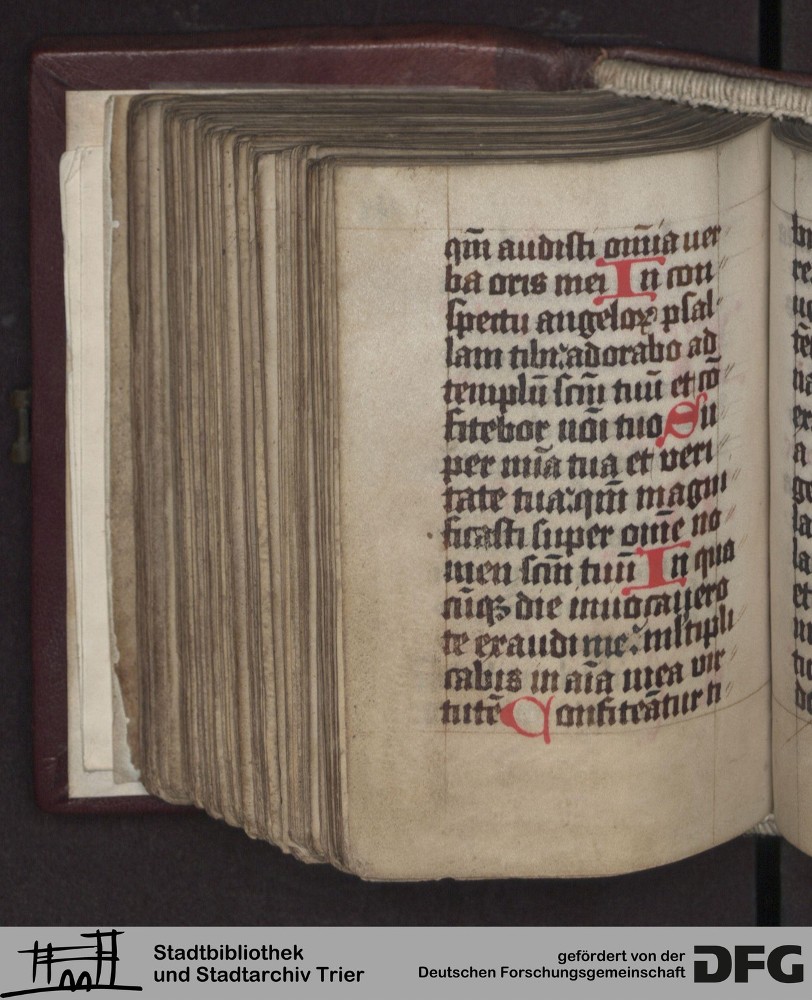 qm̄ audisti om̄ia uer
ba oris mei In con
spectu angeloꝝ psal
lam tibi: adorabo ad
templū scm̄ tuū et cō
fitebor nōi tuo Su
per mīa tua et veri
tate tua: qm̄ magni
ficasti super om̄e no
men scm̄ tuū In qua
cūqꝫ die inuocauero
te exaudi me: ml̄tipli
cabis in aīa mea vir
tutē Confiteātur ti
Stadtbibliothek
und Stadtarchiv Trier
gefördert von der
Deutschen Forschungsgemeinschaft
DFG